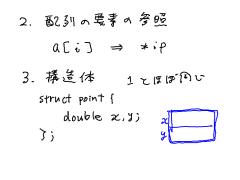 2. 配列の要素の参照
a[i] ⇒ *ip
3. 構造体 1とほぼ同じ
struct point {
double x,y;
};
x
y